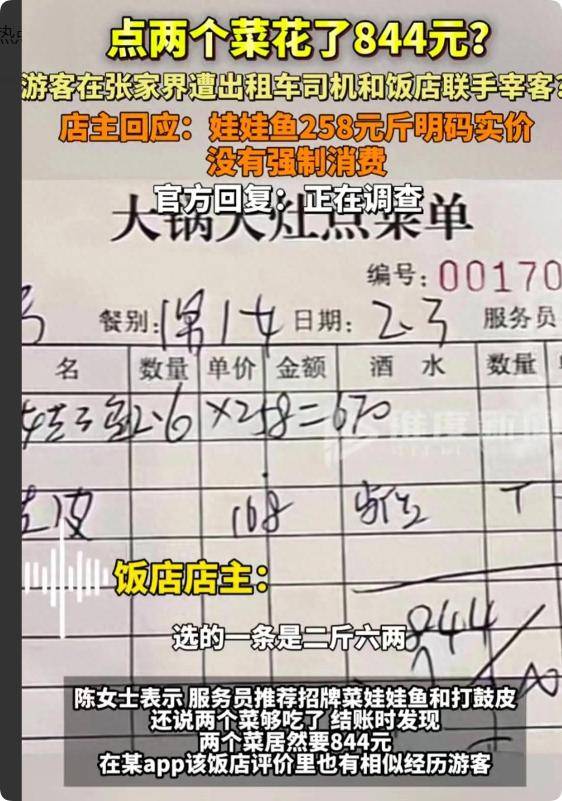 点两个菜花了844元?
游客在张家界遭出租车司机和饭店联手宰客?
店主回应：娃娃鱼258元斤明码实价
没有强制消费
官方回复：正在调查
大锅大灶点菜单
编号：00170
餐别: 日期: 2.3 服务员
名 数量 单价 金额 酒 水 数量
2.6×258=670
皮 168
饭店店主：
844
选的一条是二斤六两
陈女士表示 服务员推荐招牌菜娃娃鱼和打鼓皮
还说两个菜够吃了 结账时发现
两个菜居然要844元
在某app该饭店评价里也有相似经历游客